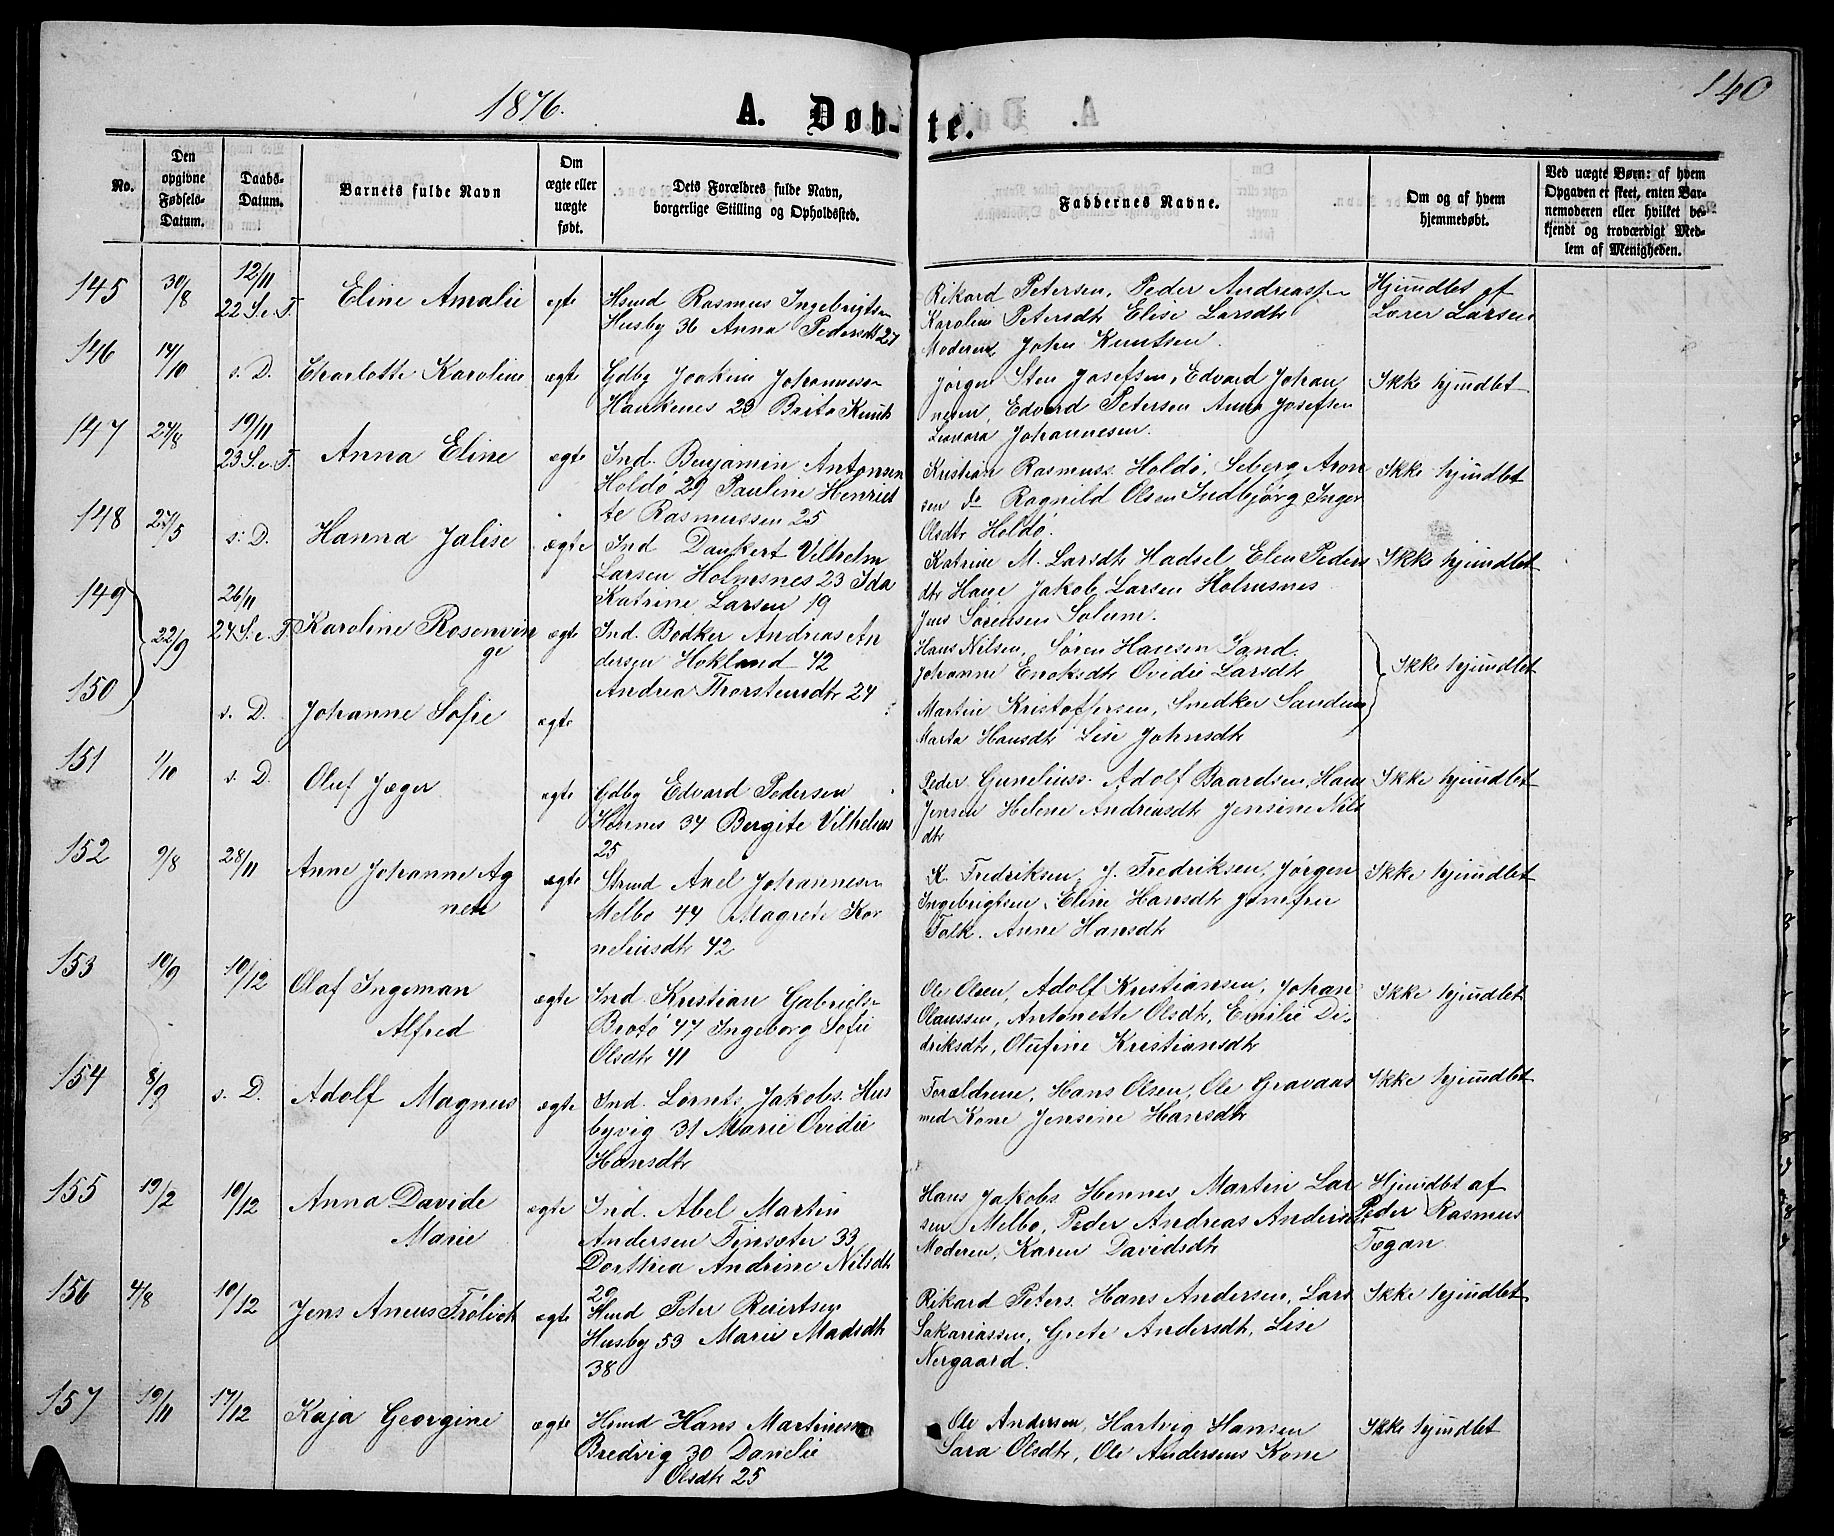 140
1876.
A. Døbte.
No.
Den opgivne Fødsels-Datum.
Daabs-Datum.
Barnets fulde Navn
Om ægte eller uægte født.
Dets Forældres fulde Navn, borgerlige Stilling og Opholdssted.
Faddernes Navne.
Om og af hvem hjemmedøbt.
Ved uægte Børn: af hvem Opgaven er skeet, enten Barnemoderen eller hvilket bekjendt og troværdigt Medlem af Menigheden.
145 30/8 12/11 22 S. e. T. Eline Amalie egte
Hsmd Rasmus Ingebrigtsn
Husby 36 Anna Pedersdt 27
Rikard Petersen, Peder Andreassn
Karoline Petersdtr Elise Larsdtr
Moderen, John Knutsen.
Hjmdbt af
Lærer Larsen
146 14/10 s. D. Charlotte Karoline ægte
Gdby Joakim Johannesen
Haukenes 23 Berit Knuts
Jørgen Sten Josefsen, Edvard Johan
nesen, Edvard Petersen Anne Josefsen
Leonora Johannesen.
Ikke hjmdbt
147 24/8 19/11 23 S. e. T. Anna Eline ægte
Ind. Benjamin Antonsen
Holdø 29 Pauline Henriet
te Rasmussen 25
Kristian Rasmuss. Holdø, Seberg Aron
sen do Ragnild Olsen Indbjørg Inger
Olsdtr Holdø.
Ikke hjmdbt
148 27/5 s. D. Hanna Jalise ægte
Ind Dankert Vilhelm
Larsen Holmsnes 23 Ida
Katrine Larsen 19
Katrine M. Larsdtr Hadsel, Elen Peders
dtr Hane Jakob Larsen Holmsnes
Jens Sørensen Solum.
Ikke hjmdbt
149 22/9 26/11 24 S. e. T. Karoline Rosenvin
ge
ægte
Ind. Bødker Andreas An
dersen Hokland 42
Andrea Thorstensdtr 24
Hans Nilsen, Søren Hansen Sand.
Johanne Enoksdtr Ovidie Larsdtr
Ikke hjmdbt
150 s. D. Johanne Sofie ægte
Martin Kristoffersen, Snedker Sandnes
Marta Hansdtr Lise Johnsdtr
151 1/10 s. D. Oluf Jæger egte
Gdby Edvard Pedersen
Hennes 34 Bergete Vilhelms
25
Peder Guneliuss. Adolf Baardsen, Hans
Jensen Helene Andreasdtr Jensine Nils
dtr
Ikke hjmdbt
152 9/8 28/11 Anne Johanne Ag
nete
ægte
Strmd Axel Johannesen
Melbo 44 Magrete Kor
neliusdtr 42
K. Fredriksen, J. Fredriksen, Jørgen
Ingebrigtsen, Eline Hansdtr Jomfru
Falk. Anne Hansdtr
Ikke hjmdbt
153 10/9 10/12 Olaf Ingeman
Alfred
ægte
Ind. Kristian Gabriels
Brotø 47 Ingeborg Sofie
Olsdtr 41
Ole Olsen, Adolf Kristiansen, Johan
Olaussen, Antonette Olsdtr, Emilie Di-
driksdtr, Olufine Kristiansdtr
Ikke hjmdbt
154 8/9 s. D. Adolf Magnus ægte
Ind. Lornts Jakobs. Hus
byvig 31 Marie Ovidie
Hansdtr
Forældrene, Hans Olsen, Ole Gravaas
med Kone Jensine Hansdtr
Ikke hjmdbt
155 19/2 10/12 Anna Davide
Marie
ægte
Ind. Abel Martin
Andersen Finsæter 33
Dorthea Andrine Nilsdtr
29
Hans Jakobs Hennes Martin Lar
sen Melbo, Peder Andreas Anders
Moderen, Karen Davidsdtr
Hjmdbt af
Peder Rasmus
Fogan
156 4/8 10/12 Jens Aneus Frølich ægte
Hmd Peter Reiertsen
Husby 53 Marie Madsdtr
38
Rikard Peters. Hans Andersen, Lars
Sakariassen, Grete Andersdtr, Lise
Nergaard.
Ikke hjmdbt
157 19/11 17/12 Kaja Georgine ægte
Hsmd Hans Martinesn
Bredvig 30 Danelie
Olsdtr 25
Ole Andersen, Hartvig Hansen
Sara Olsdtr, Ole Andersens Kone
Ikke hjmdbt